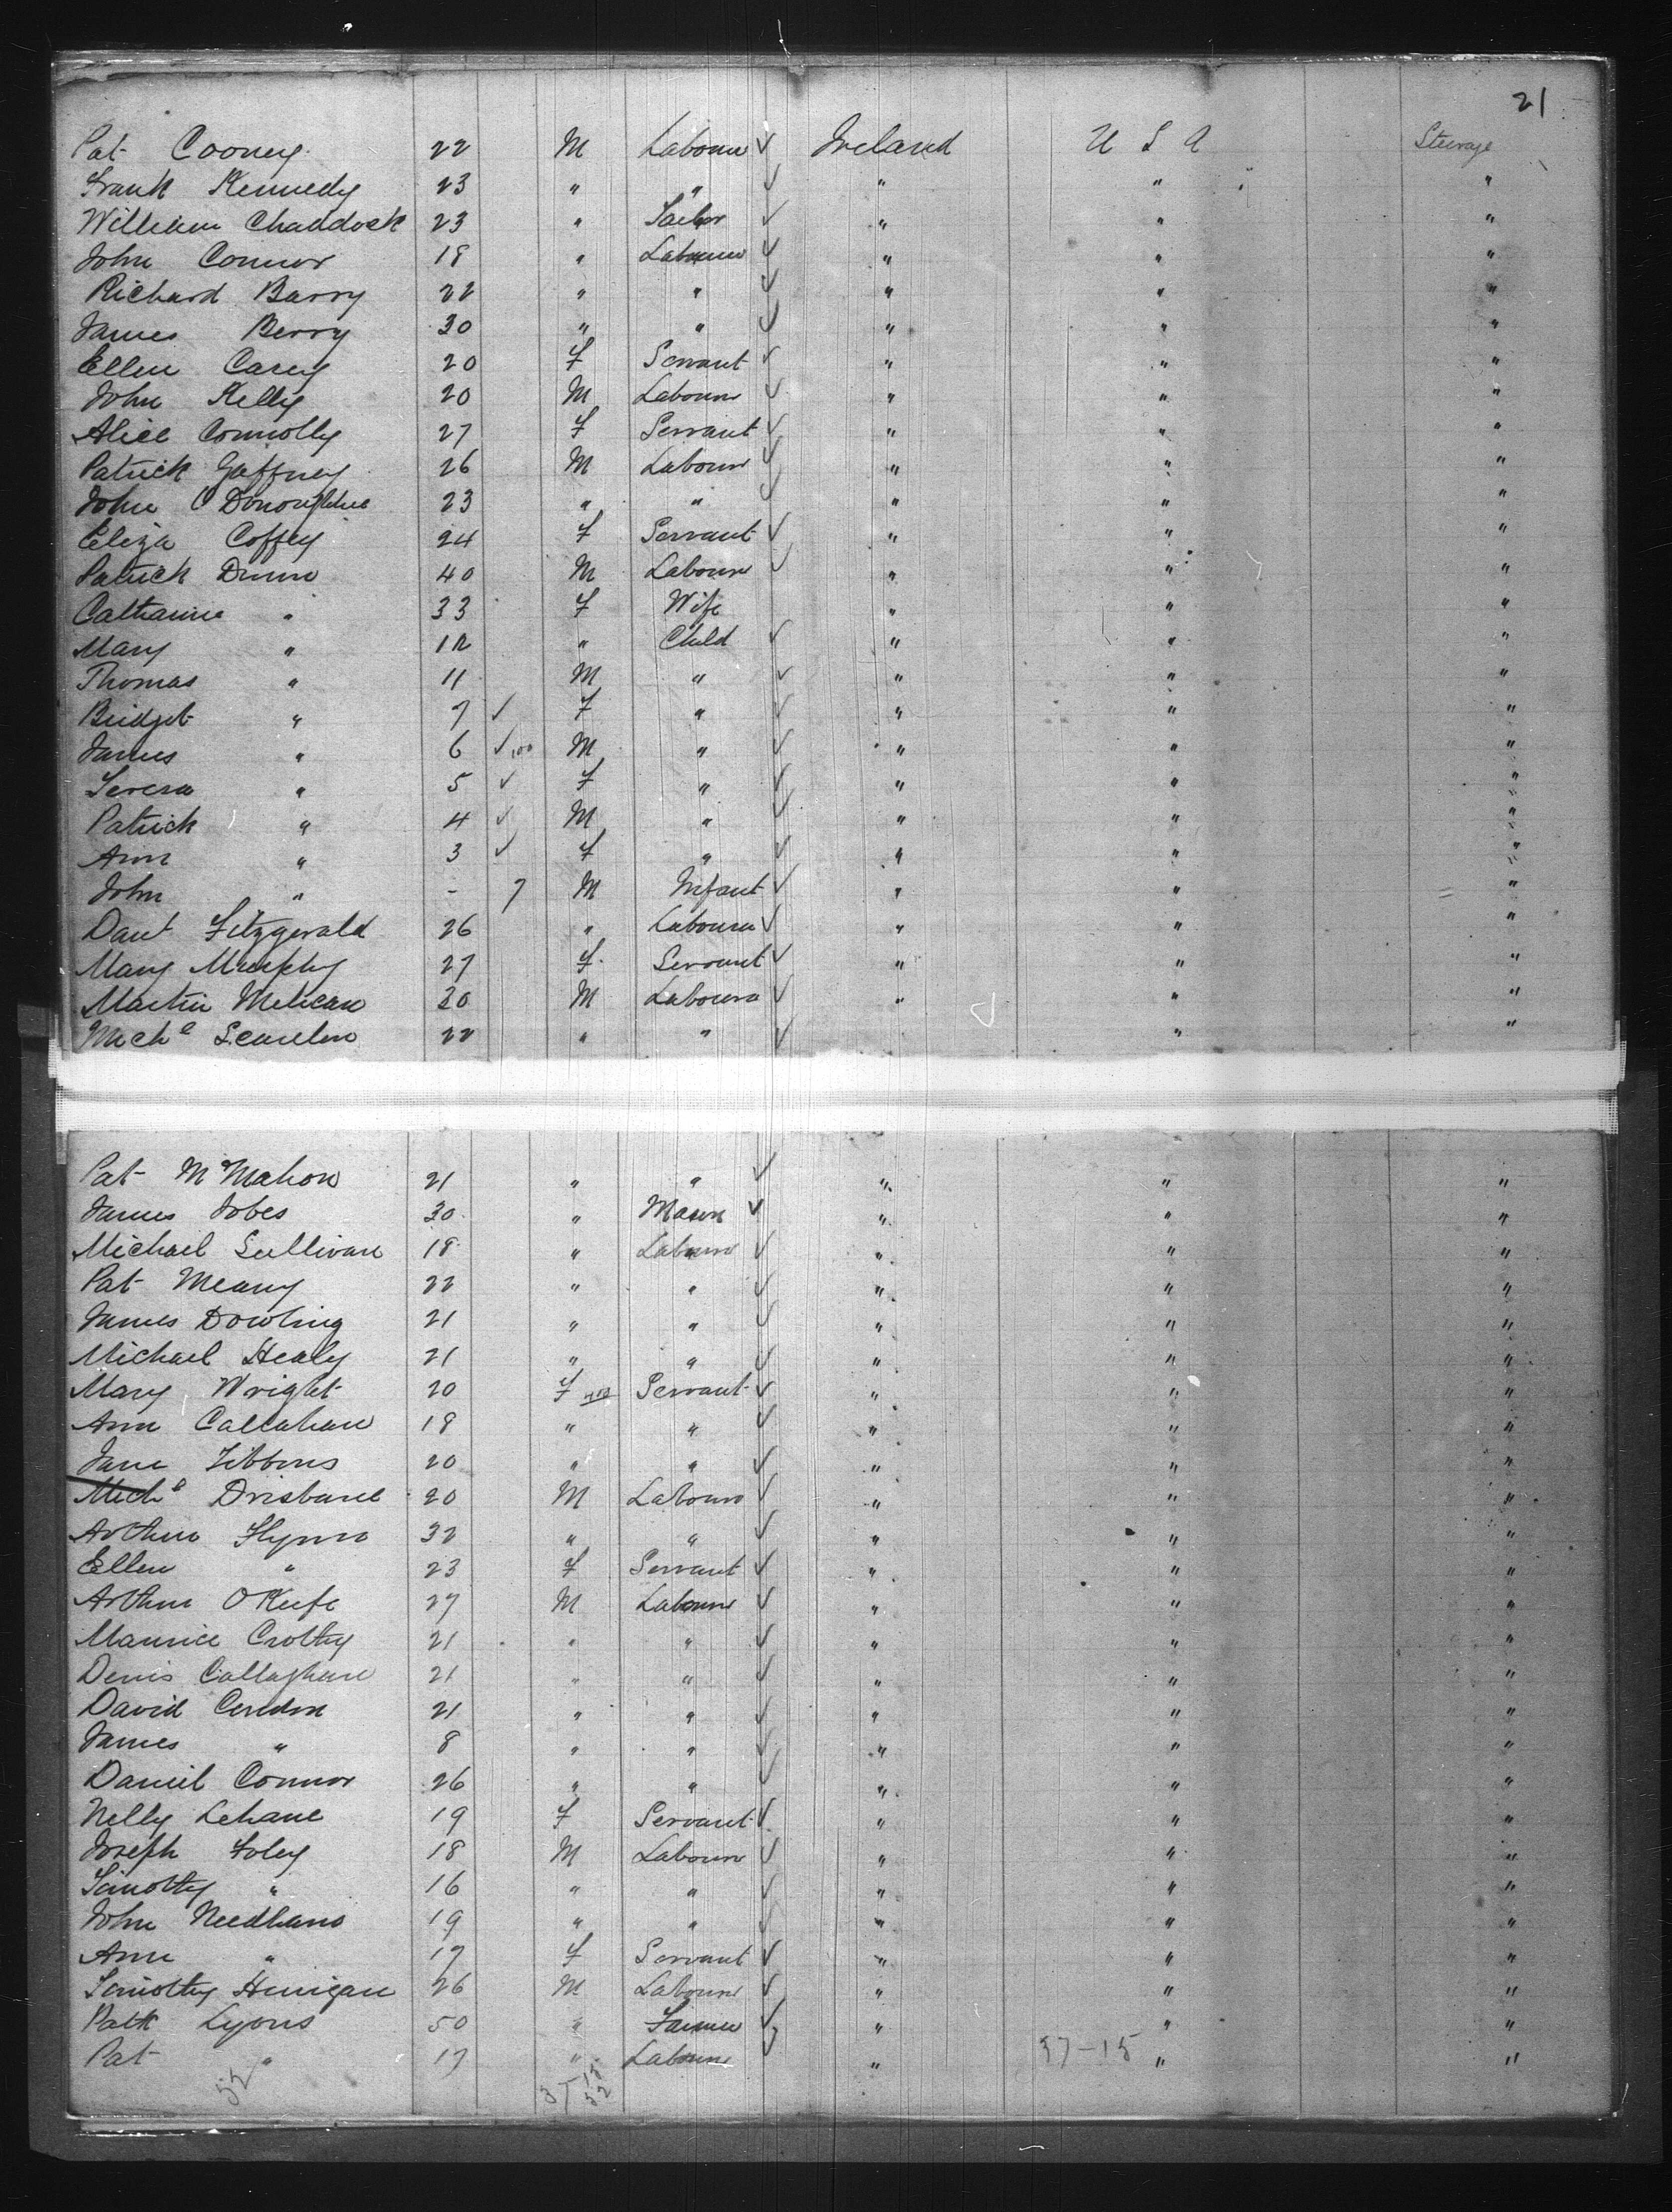 21
Pat Cooney 22 M Labourer ✓ Ireland U S A Steerage
Frank Kennedy 23 " " ✓ " " "
William Chaddock 23 " Sailor ✓ " " "
John Connor 18 " Labourer ✓ " " "
Richard Barry 22 " " ✓ " " "
James Berry 30 " " ✓ " " "
Ellen Carey 20 F Servant ✓ " " "
John Kelly 20 M Labourer ✓ " " "
Alice Connolly 27 F Servant ✓ " " "
Patrick Gaffney 26 M Labourer ✓ " " "
John O Donoughue 23 " " ✓ " " "
Eliza Coffey 24 F Servant ✓ " " "
Patrick Dunn 40 M Labourer ✓ " " "
Catharine " 33 F Wife " " "
Mary " 12 " Child ✓ " " "
Thomas " 11 M " ✓ " " "
Bridget " 7 ✓ F " ✓ " " "
James " 6 ✓ M " ✓ " " "
Teresa " 5 ✓ F " ✓ " " "
Patrick " 4 ✓ M " ✓ " " "
Ann " 3 ✓ F " ✓ " " "
John " - 7 M Infant ✓ " " "
Danl Fitzgerald 26 " Labourer ✓ " " "
Mary Murphy 27 F Servant ✓ " " "
Martin Melican 20 M Labourer ✓ " " "
Michl Scanlon 22 " " ✓ " "
Pat McMahon 21 " " ✓ " " "
James Jobes 30 " Mason ✓ " " "
Michael Sullivan 18 " Labourer ✓ " " "
Pat Meany 22 " " ✓ " " "
James Dowling 21 " " ✓ " " "
Michael Healy 21 " " ✓ " " "
Mary Wright 20 F Servant ✓ " " "
Ann Callahan 18 " " ✓ " " "
Jane Fibbons 20 " " ✓ " " "
Michl Brisbane 20 M Labourer ✓ " " "
Arthur Flynn 32 " " ✓ " " "
Ellen " 23 F Servant ✓ " " "
Arthur O Keefe 27 M Labourer ✓ " " "
Maurice Crotty 21 " " ✓ " " "
Denis Callaghan 21 " " ✓ " " "
David Condon 21 " " ✓ " " "
James " 8 " " ✓ " " "
Daniel Connor 26 " " ✓ " " "
Nelly Lehane 19 F Servant ✓ " " "
Joseph Foley 18 M Labourer ✓ " " "
Timothy " 16 " " ✓ " " "
John Needham 19 " " ✓ " " "
Ann " 17 F Servant ✓ " " "
Timothy Hinigan 26 M Labourer ✓ " " "
Patk Lyons 50 " Farmer ✓ " " "
Pat " 17 " Labourer ✓ " 37-15 " "
52 37 15 52